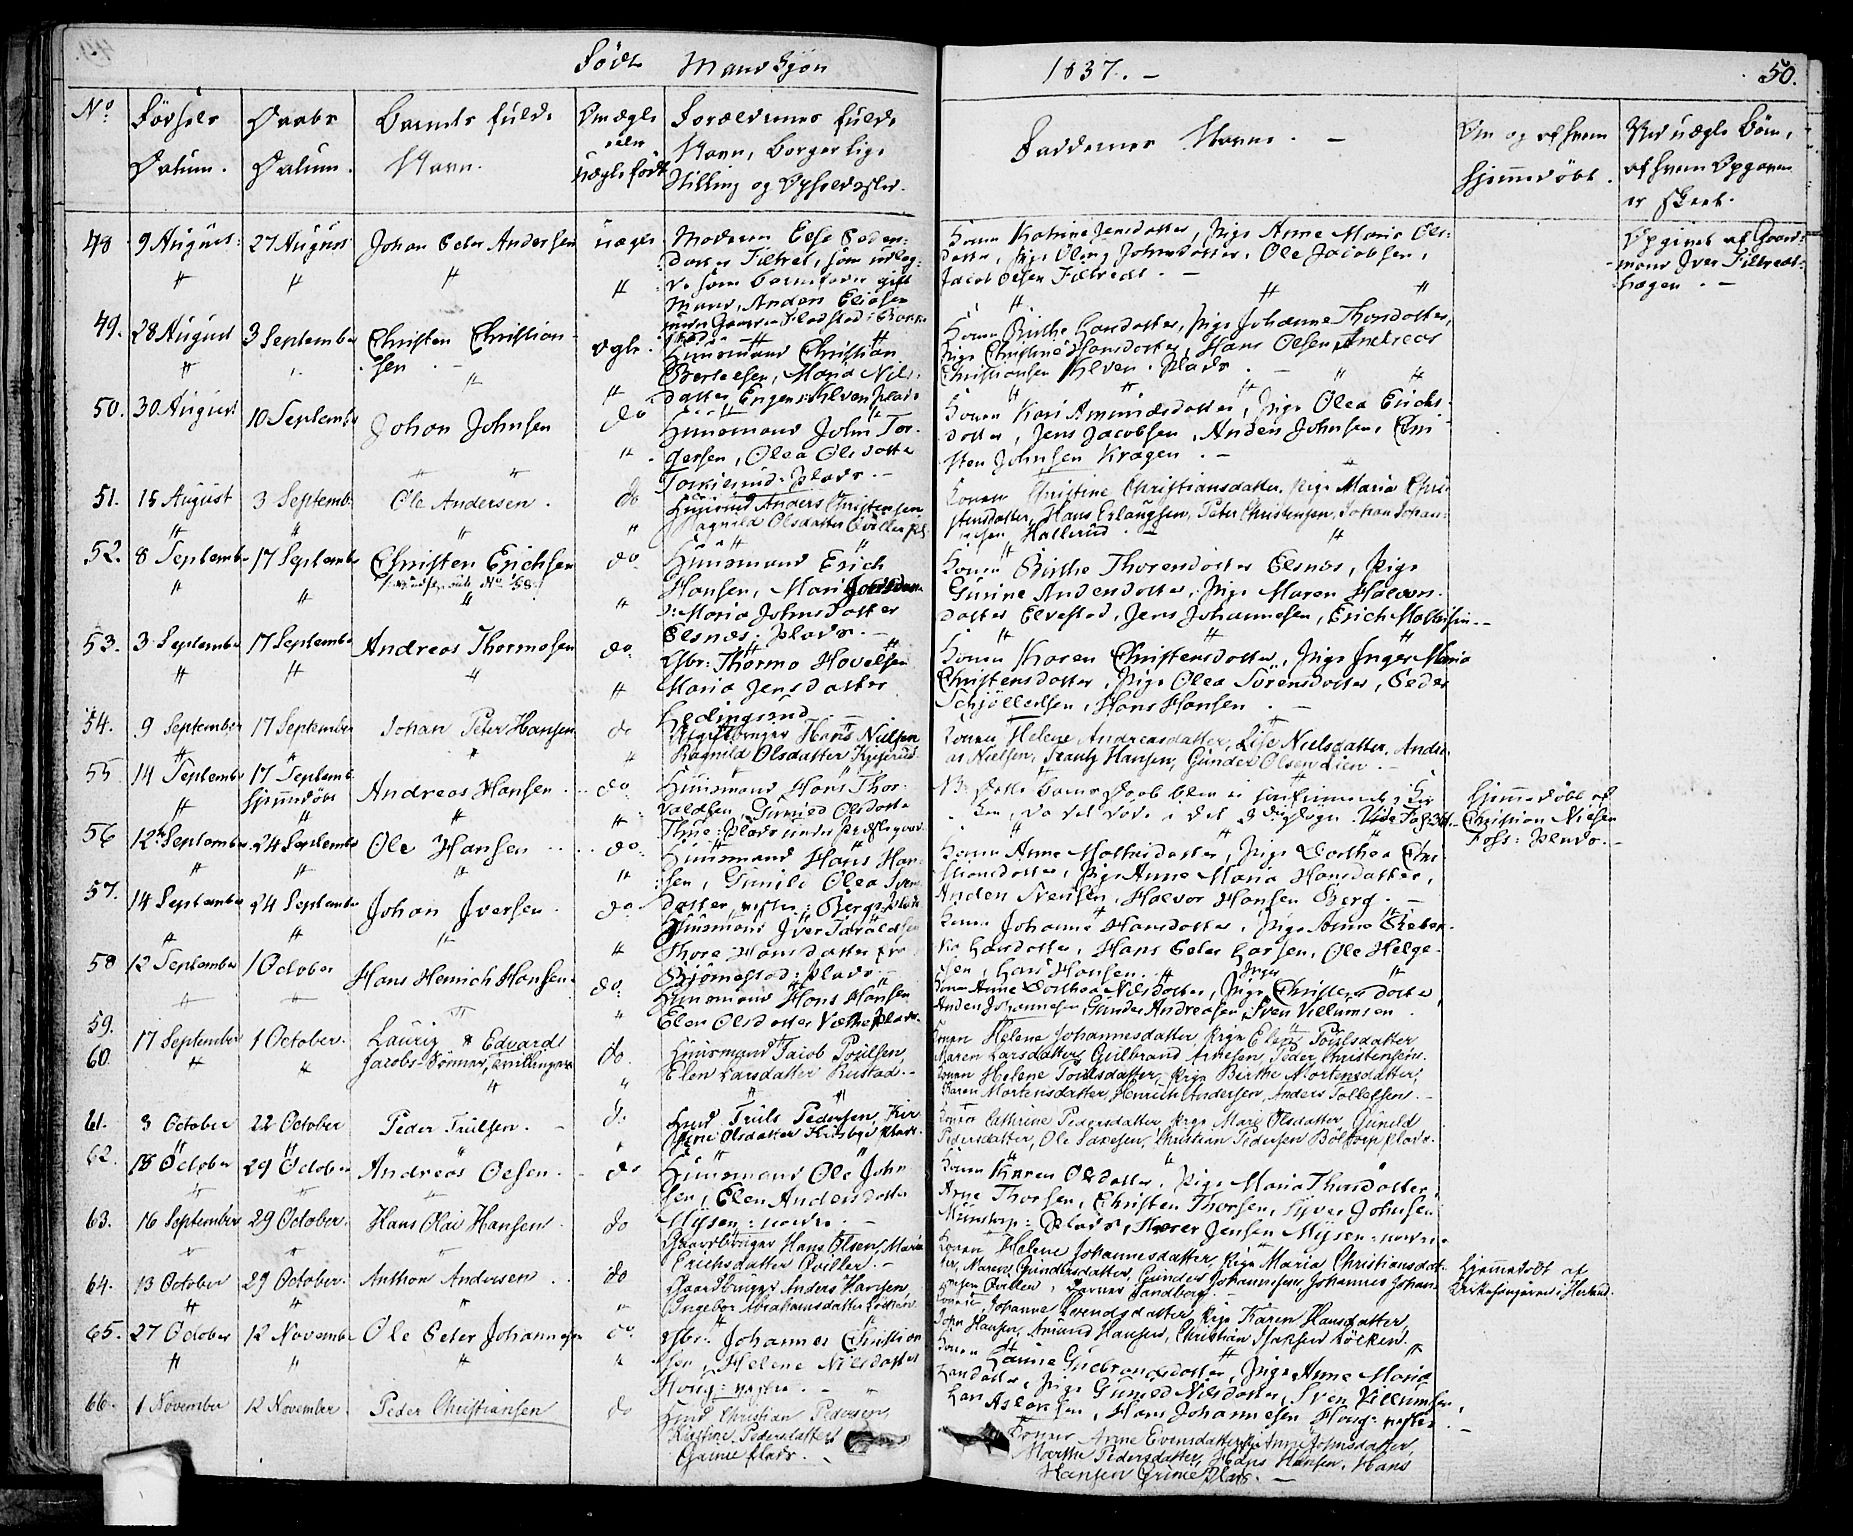 Født Mandkjøn 1837. 50.
No Fødsels Datum. Daabs Datum. Barnets fulde Navn. Om ægte eller uægte født Forældrenes fulde Navn, borgerlige Stilling og Opholdssted.
Faddernes Navne. Om og af hvem hjemmedøbt. Ved uægte Børn, af hvem Opgaven er skeet.
48 9 August 27 August Johan Peder Andersen uægte Moderen Else Peders-
datter Filtvet, som udlag-
de som Barnefader gift
Mand, Anders Eliasen
Konen Katrine Jensdatter, Pige Anne Maria Ols-
datter, Pige Oline Johnsdatter, Ole Jacobsen,
Jacob Olsen Filtvedt.
Opgivet af Gaard-
mand Iver Filtvedt-
hagen.
49. 28 August 3 September Christen Christian-
sen ægte. Huusmand Christian
Bertelsen, Maria Nils-
datter
Konen Birthe Larsdatter, Pige Johanne Thorsdatter,
Pige Christine Hansdatter, Hans Olsen, Andreas
Christiansen Plads.
50. 30 August 10 Septembr Johan Johnsen do Huusmand John Tor-
gersen, Olea Olsdatter
Plads.
Konen Kari Amundsdatter, Pige Olea Erichs-
datter, Jens Jacobsen, Anders Johnsen, Chri-
sten Johnsen Kragen.
51. 15 August 3 Septembr Ole Andersen. do Huusmd Anders Christensen
Ragnild Olsdatter Qviller pl.
Konen Christine Christiansdatter, Pige Maria Chri-
stensdatter, Hans Erlangsen, Peter Christensen, Johan Johan-
nesen Hallerud.
52. 8 Septembr 17 Septembr Christen Erichsen do Huusmand Erich
Hansen, Mari
Maria Johnsdatter
Elsnes: Plads.
Konen Birthe Thorersdatter Elsnes, Pige
Gurine Andersdatter, Pige Maren Halvors-
datter Elvestad, Jens Johannesen, Erich Mathisen.
53. 3 Septembr 17 Septembr Andreas Thormosen do Gbr: Thormo Hovelsen
Maria Jensdatter
Konen Karen Christensdatter, Pige Inger Maria
Christensdatter, Pige Olea Sörensdatter, Peder
Schjöllersen, Hans Hansen.
54. 9 September 17 September Johan Peter Hansen do Hans Nielsen
Ragnild Olsdatter
Konen Helene Andreasdatter, Lise Nielsdatter, Andre-
as Nielsen, Frantz Hansen, Gunder Olsen Lien.
55 14 Septembr 17 Septembr
hjemmedøbt Andreas Hansen do Huusmand Hans Thor-
valdsen, Gunild Olsdatter
NB. Dette Barns Daab blev ei confirmeret i Kir-
ken, da det døde Vide Fol 36.
Hjemmedøbt af
Christian Nielsen
Foss: Plads.
56 12te Septembr 24 Septembr Ole Hansen do Huusmand Hans Han-
sen, Gunild Olea Sven-
datter, vestre: Berg: Plads
Konen Anne Mathisdatter, Pige Dorthea Chri-
stiansdatter, Pige Anne Maria Hansdatter,
Anders Svensen, Halvor Hansen Berg.
57. 14 Septembr 24 Septembr Johan Iversen. do Huusmand Iver Taraldsen
Thore Hansdatter
Bjørnestad: Plads.
Konen Johanne Hansdatter, Pige Anne Rebek-
ka Larsdatter, Hans Peter Larsen, Ole Helge-
sen, Lars Hansen.
58 12 September 1 October Hans Henrich Hansen. do. Huusmand Hans Hansen
Elen Olsdatter Plads.
Konen Anne Dorthea Nilsdatter, Pige Inger Christensdatter,
Anders Johannesen, Gunder Andreasen, Sven Villumsen.
59.
60. 17 September 1 October. Lauriz & Edvard
Jacobs Sönner, Tvillinger do. Huusmand Jacob Poulsen,
Elen Larsdatter Rustad.
Konen Helene Johannesdatter, Pige Elen Poulsdatter
Maren Larsdatter, Gulbrand Arnesen, Peder Christensen.
Konen Helene Poulsdatter, Pige Birthe Mortensdatter,
Karen Mortensdatter, Henrich Andersen, Anders Tollefsen.
61. 3 October 22 October Peder Trulsen. do Hmd Truls Pedersen, Kir-
stine Olsdatter Huseby: Plads.
Konen Cathrine Pedersdatter, Pige Mari Olsdatter, Gunild
Pedersdatter, Ole Larsen, Christian Pedersen Böltorp plads.
62. 18 October 29 October Andreas Olsen. do Huusmand Ole John-
sen, Elen Andersdatter
Mysen: nordre.
Konen Karen Olsdatter, Pige Maria Thorsdatter,
Arne Thorsen, Christen Thorsen, Syver Johnsen
Plads, Thorer Jensen Mysen: nordre
63. 16 September 29 October. Hans Olai Hansen. do Gaardbruger Hans Olsen, Maria
Erichsdatter Qviller.
Konen Helene Johannesdatter, Pige Maria Christiansdat-
ter, Maren Gundersdatter, Gunder Johannesen, Johannes Johan-
nesen Qviller, Sandberg.
64. 13 October 29 October. Anthon Andersen do Gaardbruger Anders Hansen,
Ingebor Abrahamsdatter Löcken.
Konen Johanne Svendsdatter, Pige Karen Hansdatter,
John Hansen, Amund Hansen, Christian Isaksen Löcken.
Hjemmedöbt af
Kirkesangeren i Herland.
65. 27 October 12 November Ole Peter Johannesen do Gbr: Johannes Christian-
sen, Helene Nilsdatter
Houg: vestre.
Konen Gulbrandsdatter, Pige Anne Maria
Larsdatter, Pige Gunild Nilsdatter, Sven Villumsen,
Lars Aslaksen, Hans Johannesen Houg: vestre
66. 1 November 12 November. Peder Christiansen do Hmd Christian Pedersen,
Kirstine Pedersdatter
Grime plads.
Konen Anne Evensdatter, Pige Anne Johnsdatter,
Marthe Pedersdatter, Hans Hansen, Hans
Hansen Grime plads.